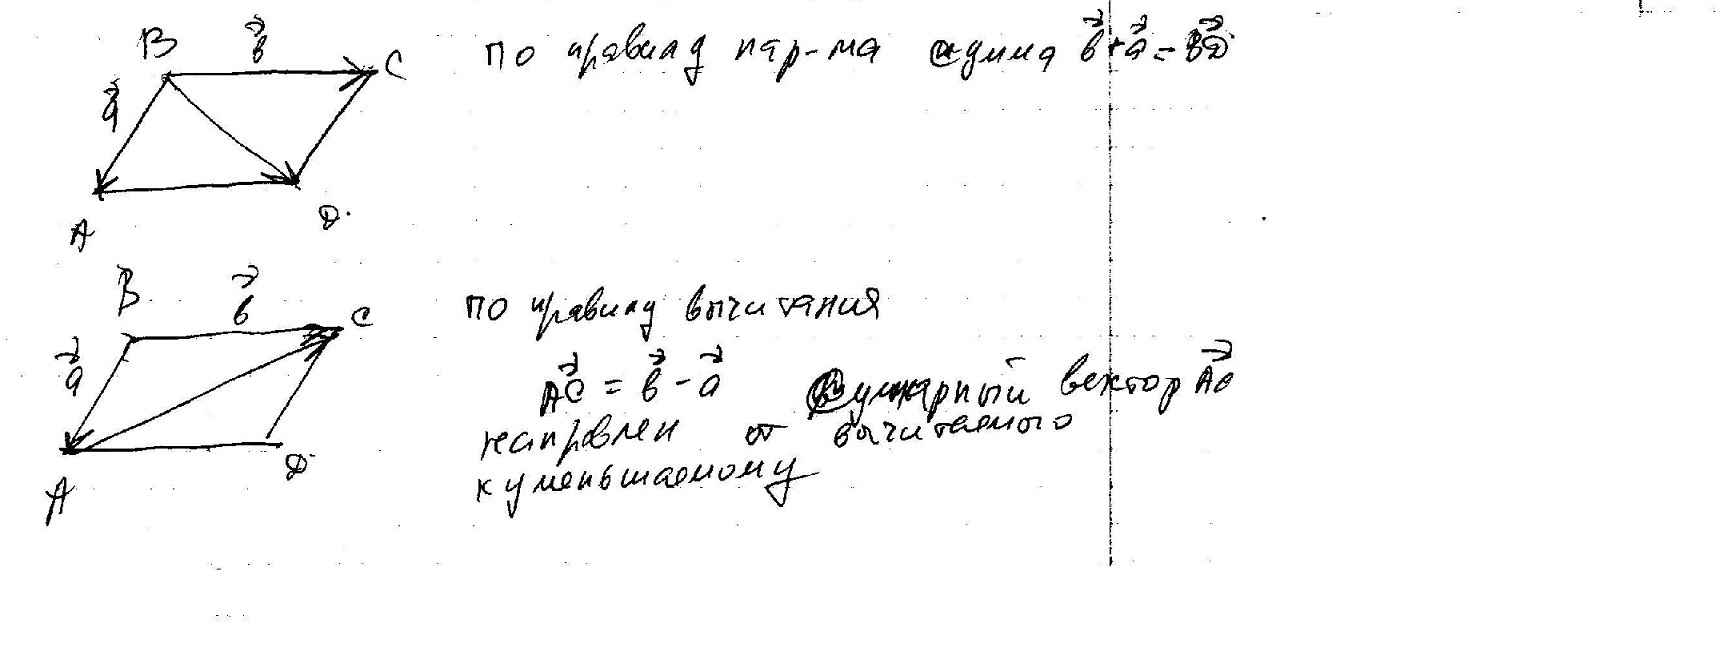 B b⃗ C
a⃗
A D
по правилу пар-ма сумма b⃗ + a⃗ = BD⃗
B b⃗ C
a⃗
A D
по правилу вычитания
AC⃗ = b⃗ - a⃗ Суммарный вектор AC⃗
направлен от вычитаемого
к уменьшаемому